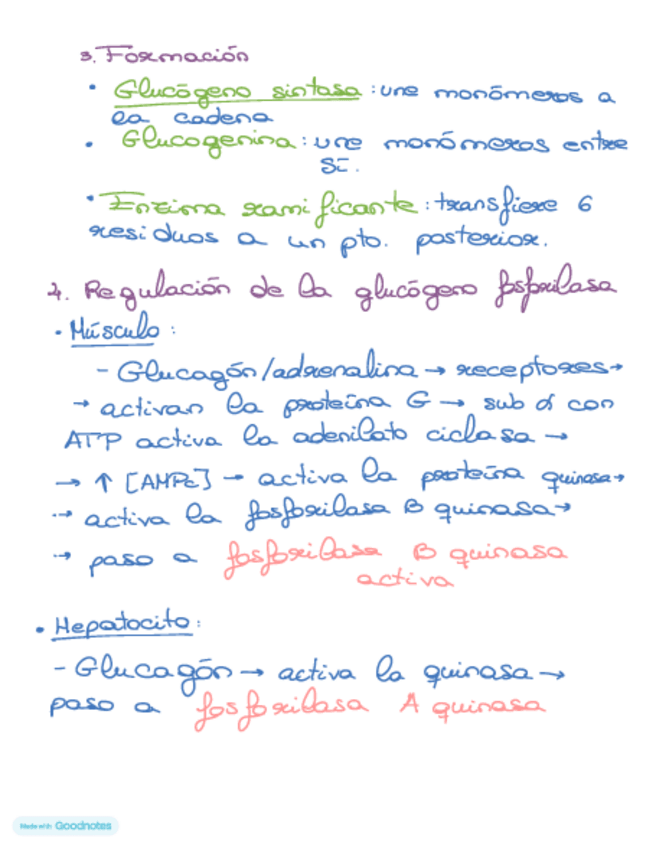 3. Formación
• Glucógeno sintasa: une monómeros a
la cadena
• Glucogenina: une monómeros entre
sí.
• Enzima ramificante: transfiere 6
residuos a un pto. posterior.
4. Regulación de la glucógeno fosforilasa
• Músculo:
- Glucagón/adrenalina → receptores →
→ activan la proteína G → sub α con
ATP activa la adenilato ciclasa →
→ ↑ [AMPc] → activa la proteína quinasa →
→ activa la fosforilasa B quinasa →
→ paso a fosforilasa B quinasa
activa
• Hepatocito:
- Glucagón → activa la quinasa →
paso a fosforilasa A quinasa
Made with Goodnotes